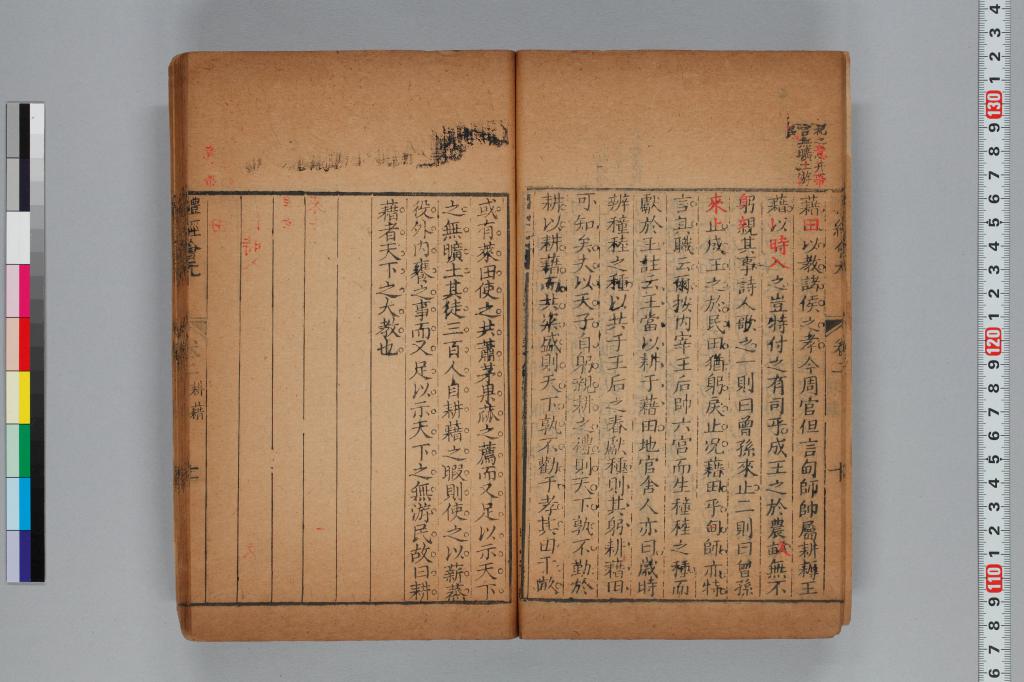 藉田以教諸侯之孝今周官但言甸師帥屬耕耨王
藉以時入之豈特付之有司乎成王之於農畝無不
躬親其事詩人歌之一則曰曾孫來止二則曰曾孫
來止成王之於民田猶躬戾止况藉田乎甸師亦特
言其職云爾按内宰王后帥六宮而生穜稑之種而
獻於王註云王當以耕于藉田地官舍人亦曰歲時
辨穜稑之種以共于王后之春獻種則其躬耕藉田
可知矣夫以天子自躬耕之禮則天下孰不勤於
耕以耕藉而共粢盛則天下孰不勸于孝其田于畝
或有萊田使之共蕭茅果蓏之薦而又足以示天下
之無曠土其徒三百人自耕藉之暇則使之以薪蒸
役外内饔之事而又足以示天下之無游民故曰耕
藉者天下之大教也
禮經會元
耕藉
十一